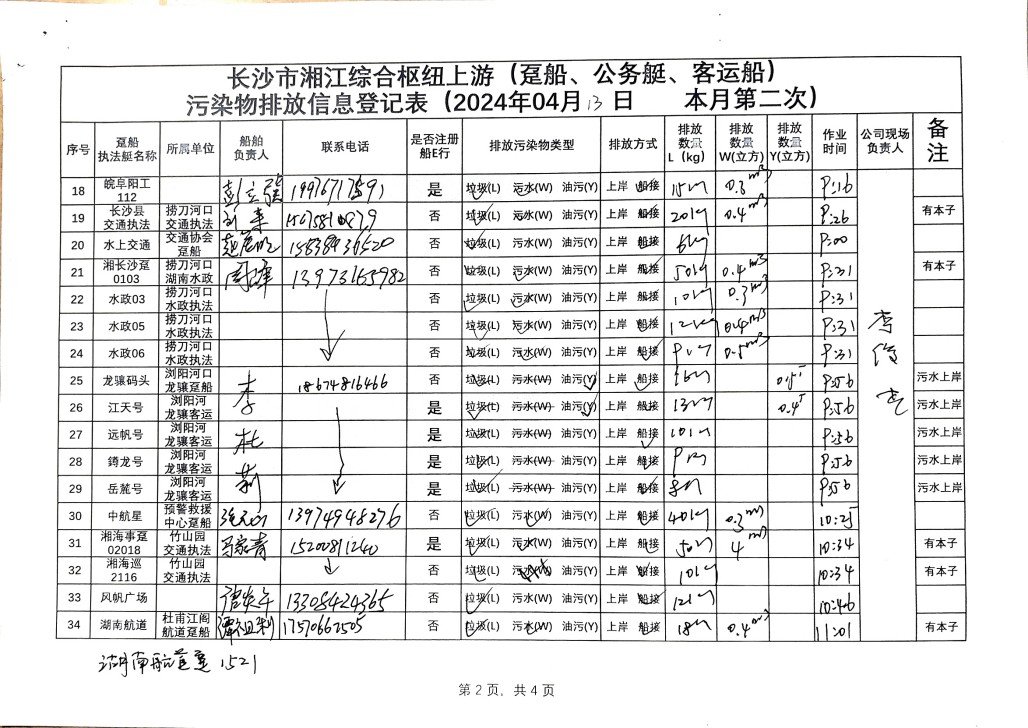 长沙市湘江综合枢纽上游（趸船、公务艇、客运船）
污染物排放信息登记表（2024年04月13日 本月第二次）
序号 趸船执法艇名称 所属单位 船舶负责人 联系电话 是否注册船E行 排放污染物类型 排放方式 排放数量L（kg） 排放数量W(立方) 排放数量Y(立方) 作业时间 公司现场负责人 备注
18 皖阜阳工112 是 垃圾(L) 污水(W) 油污(Y) 上岸 船接 0.3m³
19 长沙县交通执法 捞刀河口交通执法 否 垃圾(L) 污水(W) 油污(Y) 上岸 船接 20kg 0.4m³ 有本子
20 水上交通 交通协会趸船 否 垃圾(L) 污水(W) 油污(Y) 上岸 船接
21 湘长沙趸0103 捞刀河口湖南水政 周峰 13973165982 否 垃圾(L) 污水(W) 油污(Y) 上岸 船接 50kg 0.4m³ 有本子
22 水政03 捞刀河口水政执法 否 垃圾(L) 污水(W) 油污(Y) 上岸 船接 10kg 0.3m³
23 水政05 捞刀河口水政执法 否 垃圾(L) 污水(W) 油污(Y) 上岸 船接 12kg 0.4m³
24 水政06 捞刀河口水政执法 否 垃圾(L) 污水(W) 油污(Y) 上岸 船接 0.5m³
25 龙骧码头 浏阳河口龙骧趸船 李 18674816466 否 垃圾(L) 污水(W) 油污(Y) 上岸 船接 污水上岸
26 江天号 浏阳河龙骧客运 是 垃圾(L) 污水(W) 油污(Y) 上岸 船接 污水上岸
27 远帆号 浏阳河龙骧客运 杜 是 垃圾(L) 污水(W) 油污(Y) 上岸 船接 污水上岸
28 鐏龙号 浏阳河龙骧客运 是 垃圾(L) 污水(W) 油污(Y) 上岸 船接 污水上岸
29 岳麓号 浏阳河龙骧客运 是 垃圾(L) 污水(W) 油污(Y) 上岸 船接 污水上岸
30 中航星 预警救援中心趸船 13974948276 否 垃圾(L) 污水(W) 油污(Y) 上岸 船接 40kg 0.3m³ 10:25
31 湘海事趸02018 竹山园交通执法 15200811240 是 垃圾(L) 污水(W) 油污(Y) 上岸 船接 50kg 10:34 有本子
32 湘海巡2116 竹山园交通执法 否 垃圾(L) 污水(W) 油污(Y) 上岸 船接 10kg 10:34 有本子
33 风帆广场 13308424365 否 垃圾(L) 污水(W) 油污(Y) 上岸 船接 12kg 10:46
34 湖南航道 杜甫江阁航道趸船 17570662505 否 垃圾(L) 污水(W) 油污(Y) 上岸 船接 18kg 0.4m³ 11:01 有本子
湖南航道趸 1521
第 2 页，共 4 页